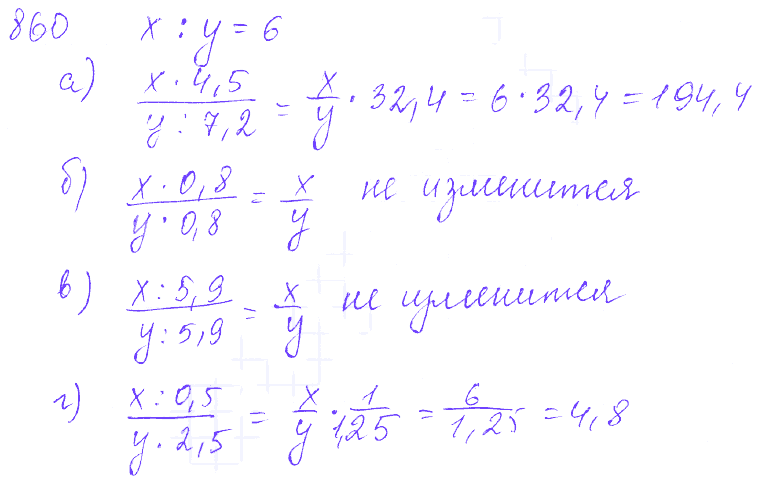 860 x : y = 6
а) x · 4,5 / y : 7,2 = x/y · 32,4 = 6 · 32,4 = 194,4
б) x · 0,8 / y · 0,8 = x/y не изменится
в) x : 5,9 / y : 5,9 = x/y не изменится
г) x : 0,5 / y · 2,5 = x/y · 1/1,25 = 6/1,25 = 4,8